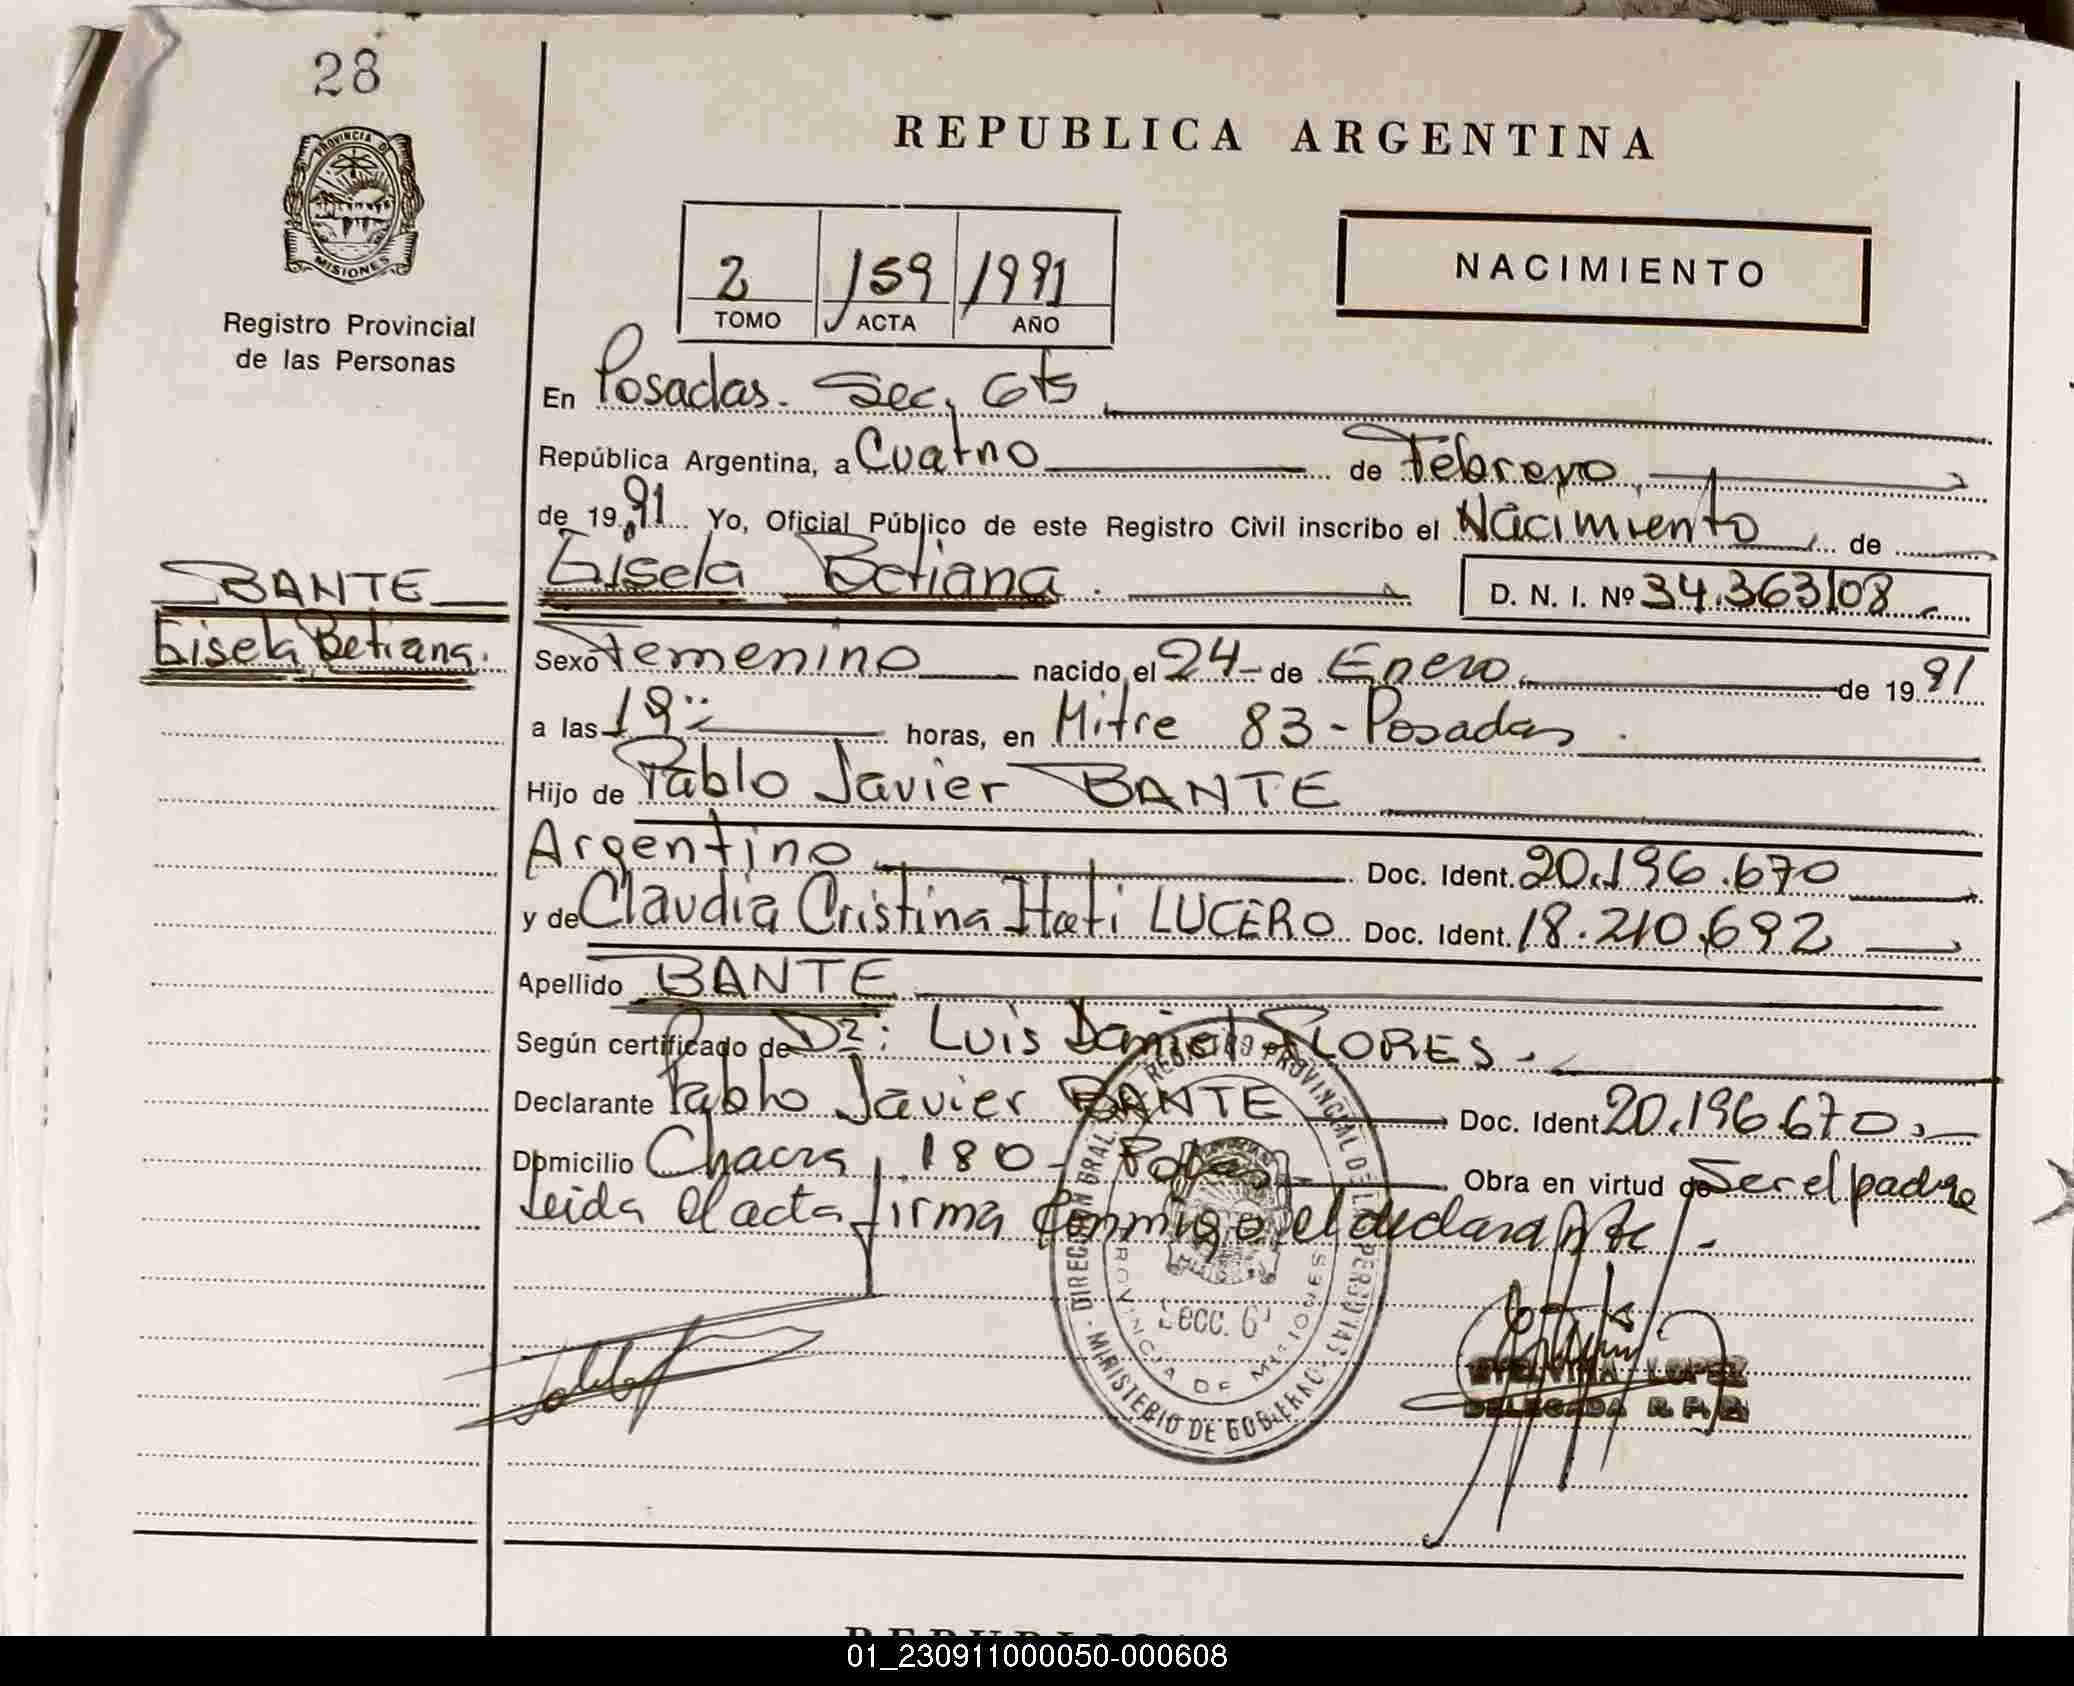 28
PROVINCIA DE
MISIONES
Registro Provincial
de las Personas
REPUBLICA ARGENTINA
2 159 1991
TOMO ACTA AÑO
NACIMIENTO
En Posadas. Sec. 6ts
República Argentina, a Cuatro de Febrero,
de 19 91 Yo, Oficial Público de este Registro Civil inscribo el Nacimiento de
Gisela Betiana. D. N. I. Nº 34.363108
BANTE
Gisela Betiana.
Sexo Femenino nacido el 24 de Enero de 19 91
a las 19 horas, en Mitre 83 - Posadas.
Hijo de Pablo Javier BANTE
Argentino Doc. Ident. 20.196.670
y de Claudia Cristina Itati LUCERO Doc. Ident. 18.210.692
Apellido BANTE
Según certificado de Dr: Luis Daniel FLORES.
Declarante Pablo Javier BANTE Doc. Ident 20.196.670.
Domicilio Chacra 180 - Obra en virtud de Ser el padre
Leida el acta firma conmigo el declarante.
DIRECCION GRAL. REGISTRO PROVINCIAL DE LAS PERSONAS
MINISTERIO DE GOBIERNO
PROVINCIA DE MISIONES
Secc. 6
LOPEZ
DELEGADA R. P. P.
01_230911000050-000608